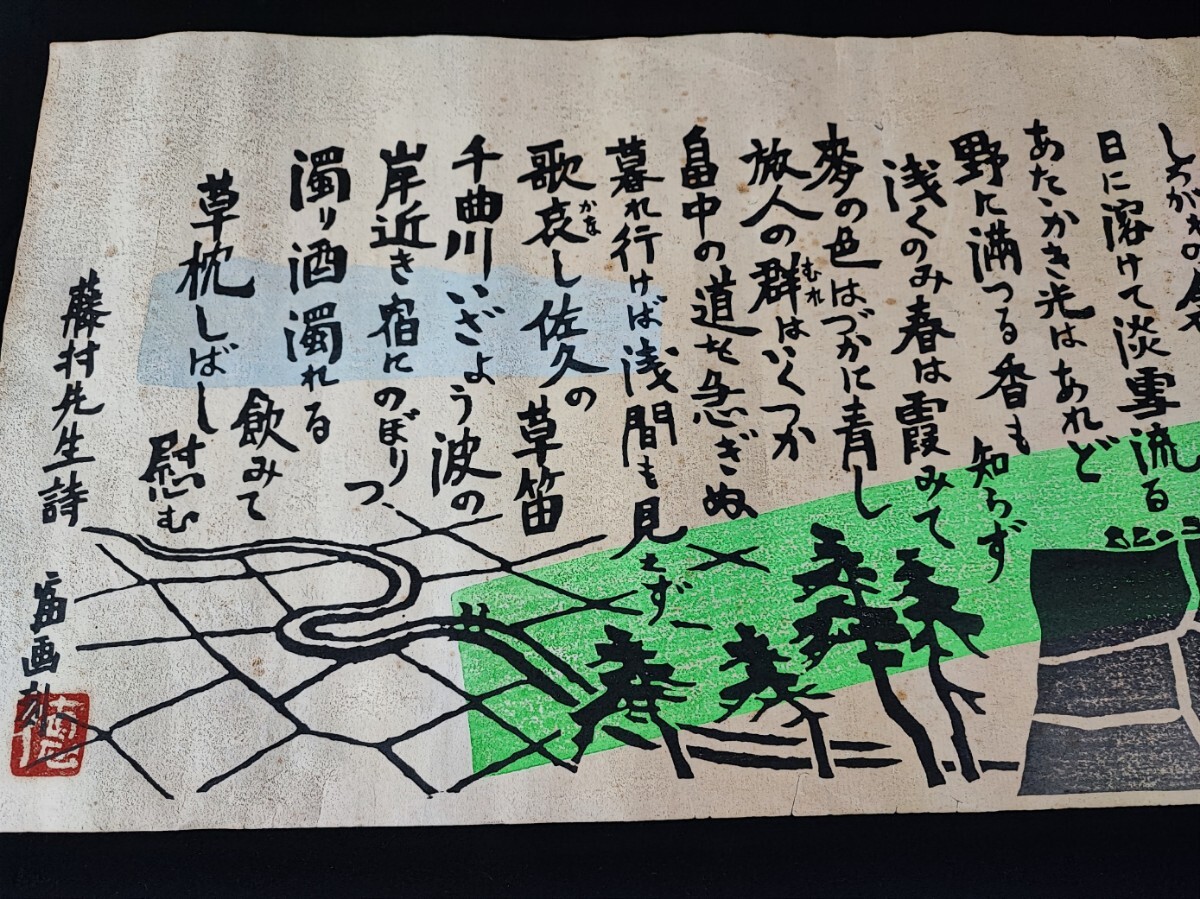 しろがねの
日に溶けて淡雪流る
あたゝかき光はあれど
野に満つる香も知らず
浅くのみ春は霞みて
麥の色はづかに青し
旅人の群はいくつか
むれ
畠中の道を急ぎぬ
暮れ行けば浅間も見えず
歌哀し佐久の草笛
かな
千曲川いざよう波の
岸近き宿にのぼりつ
濁り酒濁れる飲みて
草枕しばし慰む
藤村先生詩
画